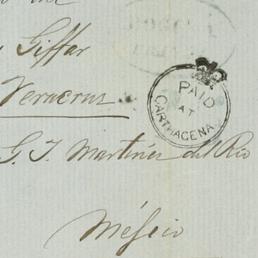 Giffar
Veracruz
PAID
AT
CARTHAGENA
G. J. Martinez del Rio
Méjico